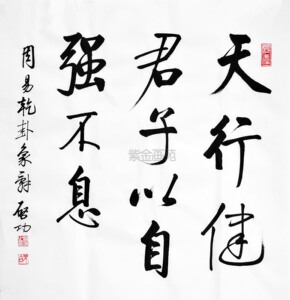 天行健
君子以自
强不息
周易乾卦象辞 启功
紫金画苑